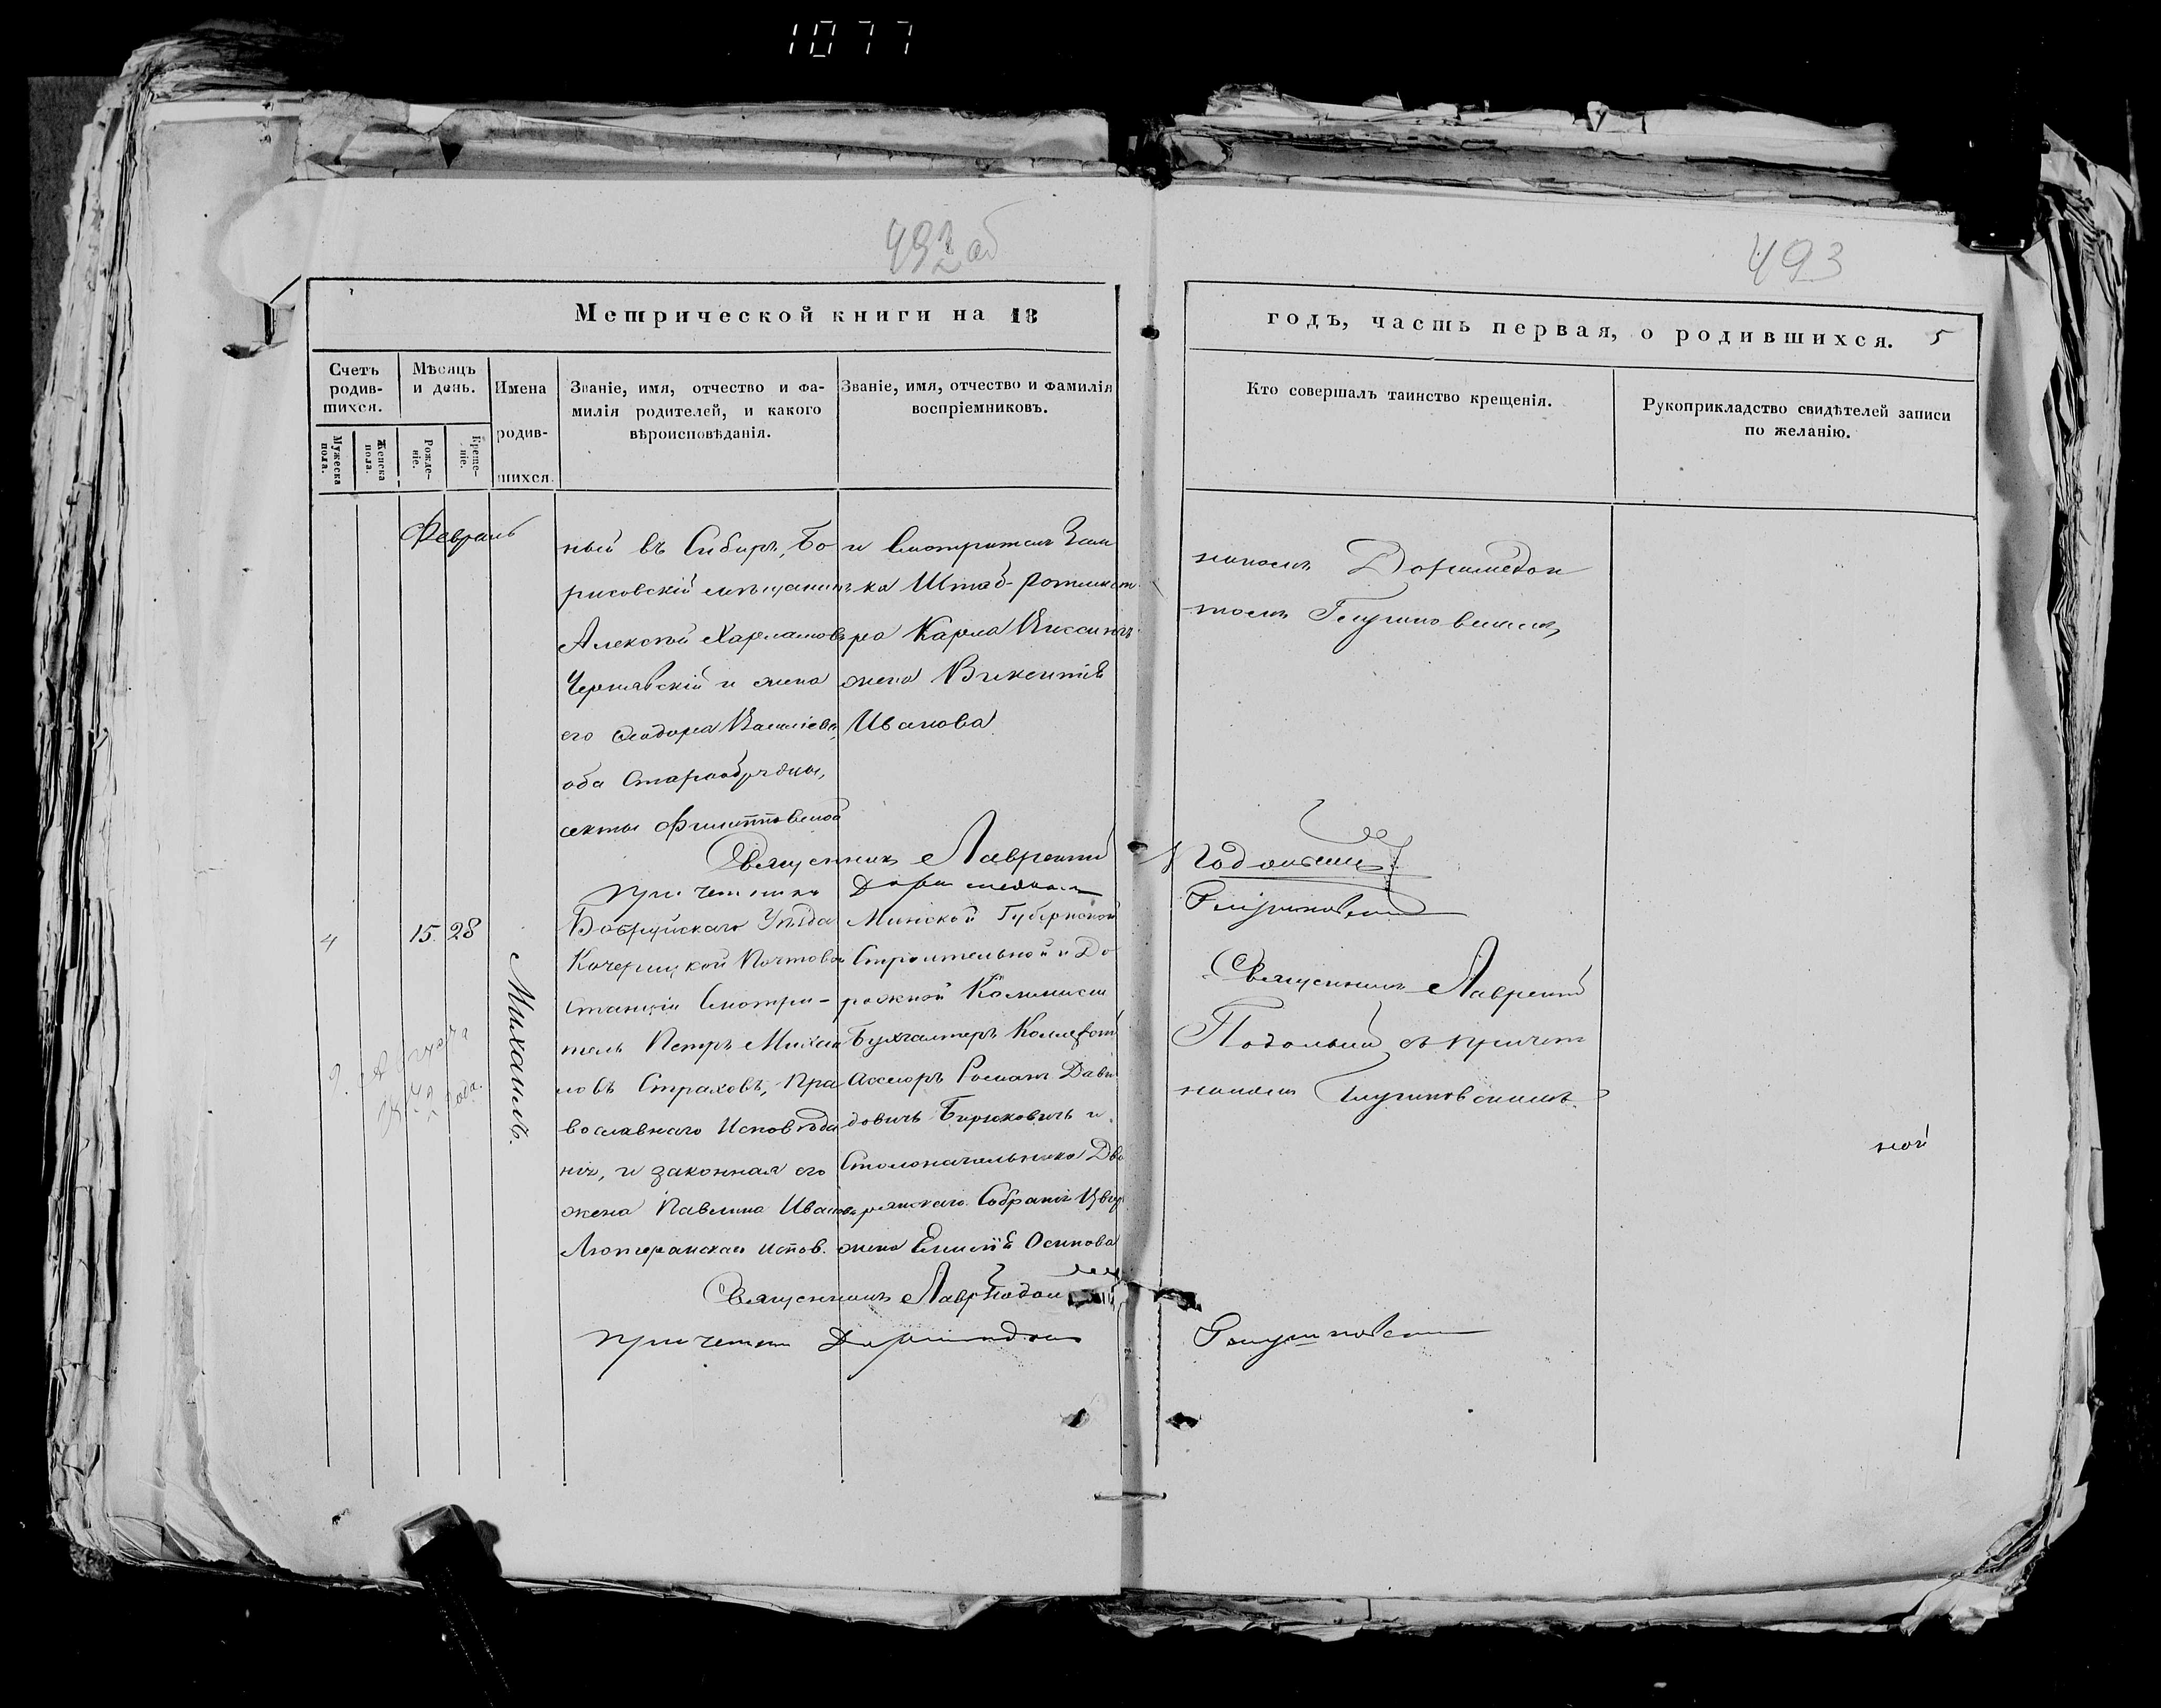 1077
492 об
493
Метрической книги на 18
годъ, часть первая, о родившихся. 5
Счетъ родив-шихся.
Мужеска пола.
Женска пола.
Мѣсяцъ и день.
Рожде-ніе.
Креще-ніе.
Имена родив-шихся.
Званіе, имя, отчество и фа-
милія родителей, и какого
вѣроисповѣданія.
Званіе, имя, отчество и фамилія
воспріемниковъ.
Кто совершалъ таинство крещенія.
Рукоприкладство свидѣтелей записи
по желанію.
Февраль
ный въ Сибирь, Бо-
рисовскій мѣщанинъ
Алексѣй Харламовъ
Чернявскій и жена
его Ѳеодора Васильева,
оба Старообрядцы,
секты Филипповской
и Смотрителя Зам
ка Штаб-Ротмист
ра Карла
жена Викентія
Иванова
никомъ Доримедон
томъ Глушковскимъ
Священникъ Лаврентій Подольскій
Причетникъ Доримедонтъ Глушковскій
4
15. 28
Михаилъ.
Бобруйскаго Уѣзда
Качерицкой Почтовой
Станціи Смотри-
тель Петръ Михаи
ловъ Страховъ, Пра
вославнаго Исповѣда
нія, и законная его
жена Павлина Иванова
Лютеранскаго испов.
Минской Губернской
Строительной и До
рожной Коммисіи
Бухгалтеръ Коллежскій
Ассесоръ Романъ Дави
довичъ Бирюковичъ и
Столоначальника Дво
рянскаго Собранія
жена Емилія Осипова
Священникъ Лаврентій
Подольскій съ причет
никомъ Глушковскимъ.
ной
Священникъ Лавр. Подольскій
Причетникъ Доримедонтъ Глушковскій